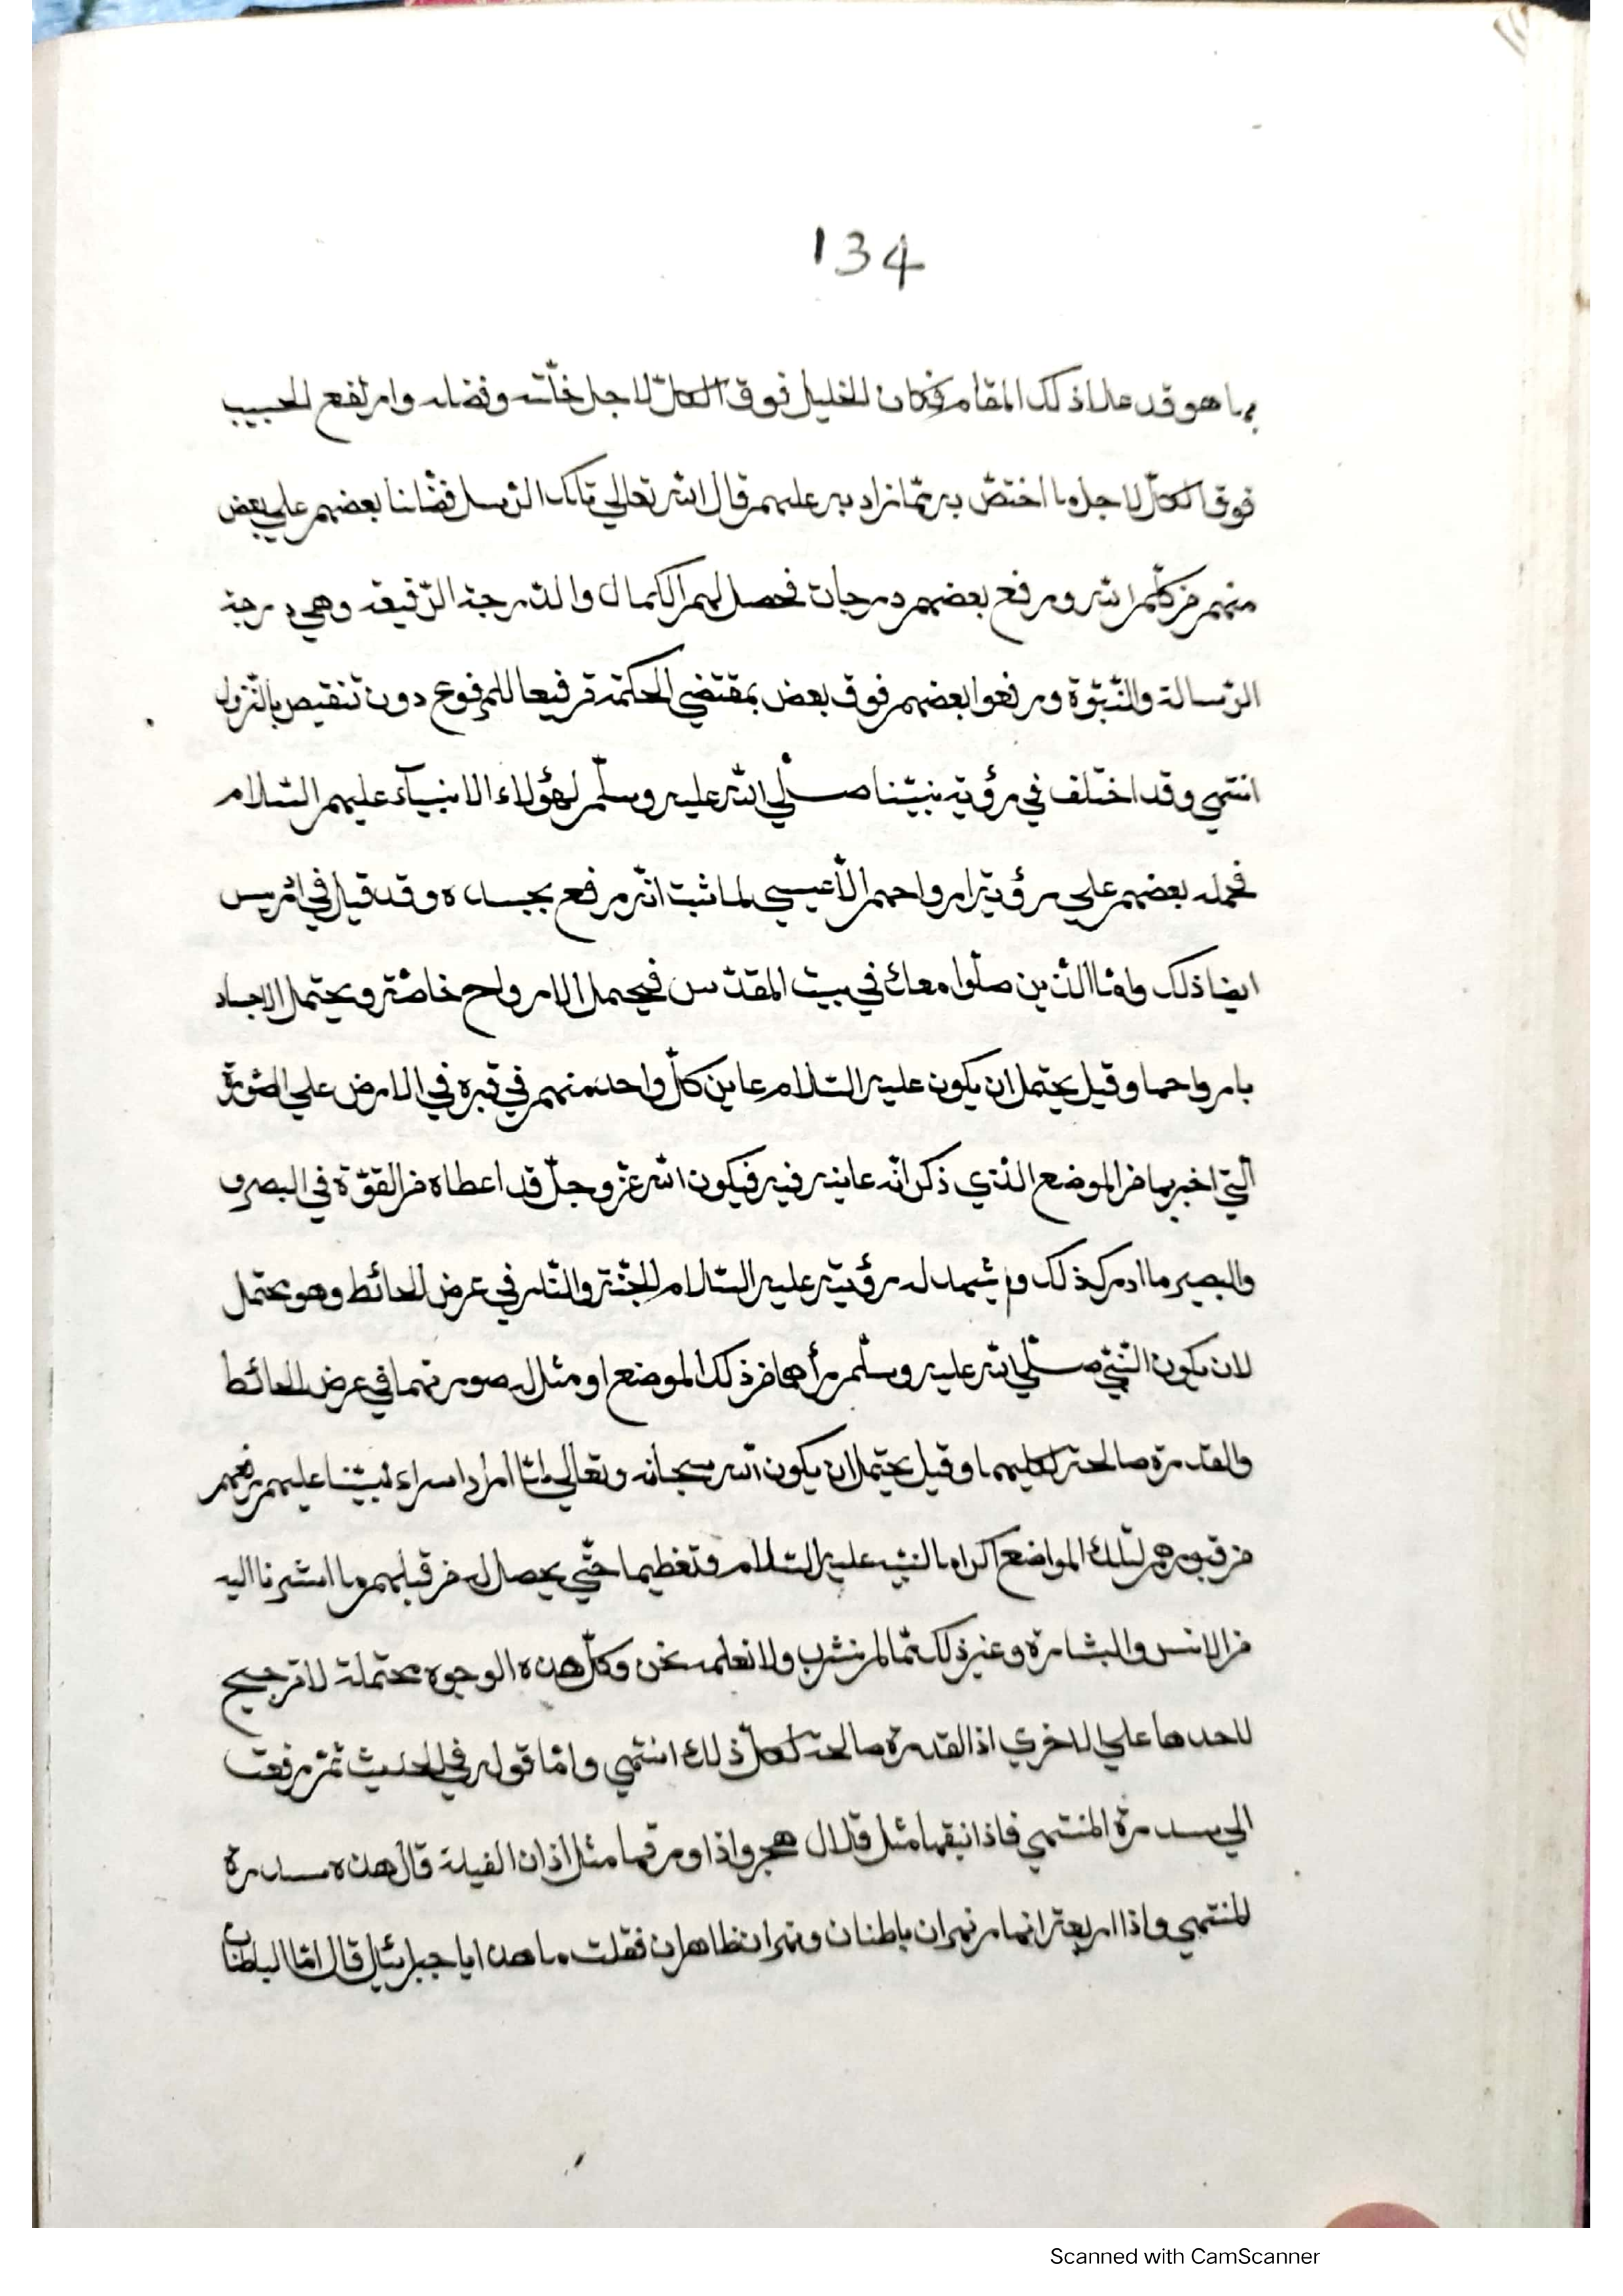 134
بها هو قد علا ذلك المقام فكان الخليل فوق الكلّ لاجل خلّته وفضله وارتفع الحبيب
فوق الكلّ لاجل ما اختصّ به ممّا زاد به عليهم قال الله تعالي تلك الرّسل فضّلنا بعضهم علي بعض
منهم من كلّم الله ورفع بعضهم درجات فحصل لهم الكمال والدّرجة الرّفيعة وهي درجة
الرّسالة والنّبوّة ورفعوا بعضهم فوق بعض بمقتضي الحكمة ترفيعا للمرفوع دون تنقيص بالنّزول
انتهي وقد اختلف في رؤية نبيّنا صلّي الله عليه وسلّم لهؤلاء الانبيآء عليهم السّلام
فحمله بعضهم علي رؤية ارواحهم الّا عيسي لما ثبت انّه رفع بجسده وقد قيل في ادريس
ايضا ذلك وامّا الّذين صلّوا معك في بيت المقدّس فيحمل الارواح خاصّة ويحتمل الاجساد
بارواحها وقيل يحتمل ان يكون عليه السّلام عاين كلّ واحد منهم في قبره في الارض علي الصّورة
الّتي اخبر بها من الموضع الّذي ذكر انّه عاينه فيه فيكون الله عزّ وجلّ قد اعطاه من القوّة في البصر و
والبصير ما ادرك ذلك و يشهد له رؤيته عليه السّلام الجنّة والنّار في عرض الحائط وهو يحتمل
لان يكون النّبيّ صلّي الله عليه وسلّم رأهما من ذلك الموضع او مثل له صورتهما في عرض الحائط
والقدرة صالحة لكليهما وقيل يحتمل ان يكون الله سبحانه وتعالي لمّا اراد اسراء نبيّنا عليهم رفعهم
من قبورهم لتلك المواضع اكراما لنبيّه عليه السّلام وتعظيما حتّي يحصل له من قبلهم ما اشرنا اليه
من الانس والبشارة وغير ذلك ممّا لم نشر به ولا نعلمه نحن وكلّ هذه الوجوه محتملة لا ترجيح
لاحدها علي الاخري اذ القدرة صالحة لكلّ ذلك انتهي وامّا قوله في الحديث ثمّ رفعت
الي سدرة المنتهي فاذا نبقها مثل قلال هجر واذا ورقها مثل اذان الفيلة قال هذه سدرة
المنتهي واذا اربعة انهار نهران باطنان ونهران ظاهران فقلت ما هذا يا جبرئيل قال امّا الباطنان